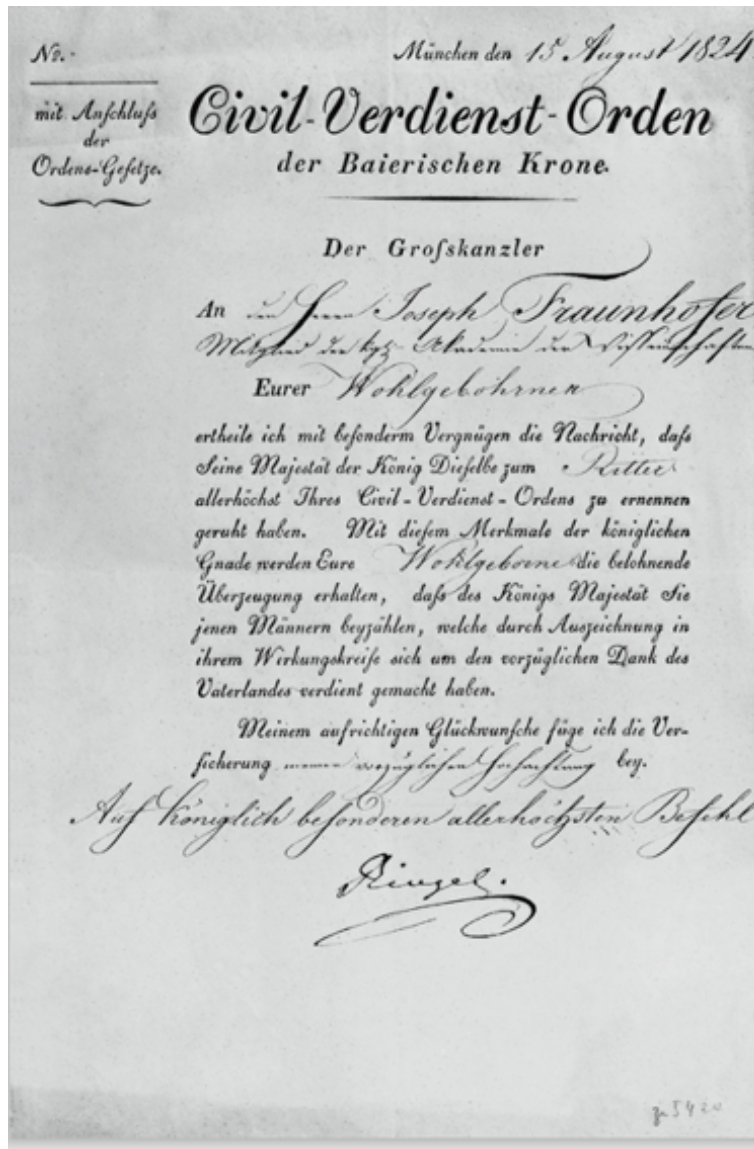 No. -
München den 15 August 1824
mit Anſchluſs
der
Ordens-Geſetze.
Civil-Verdienst-Orden
der Baierischen Krone.
Der Groſskanzler
An den Herrn Joseph Fraunhofer
Mitglied der kgl. Akademie der Wissenschaften
Eurer Wohlgebohrnen
ertheile ich mit beſonderm Vergnügen die Nachricht, daſs
Seine Majestät der König Dieſelbe zum Ritter
allerhöchst Ihres Civil-Verdienst-Ordens zu ernennen
geruht haben. Mit dieſem Merkmale der königlichen
Gnade werden Eure Wohlgeborne die belohnende
Überzeugung erhalten, daſs des Königs Majestät Sie
jenen Männern beyzählen, welche durch Auszeichnung in
ihrem Wirkungskreiſe sich um den vorzüglichen Dank des
Vaterlandes verdient gemacht haben.
Meinem aufrichtigen Glückwunſche füge ich die Ver-
ſicherung meiner vorzüglichen Hochachtung bey.
Auf Königlich beſonderen allerhöchsten Befehl
Ringel.
5420